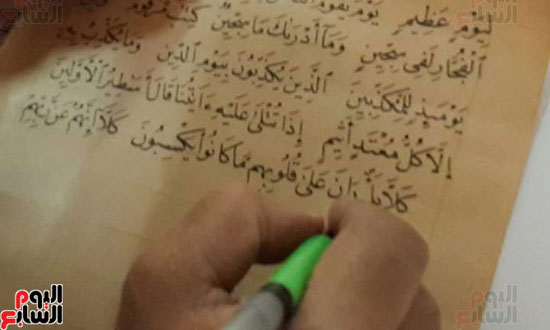 لِيَوْمٍ عَظِيمٍ يَوْمَ يَقُومُ
ٱلْفُجَّارِ لَفِى سِجِّينٍ وَمَآ أَدْرَىٰكَ مَا سِجِّينٌ كِتَٰبٌ مَّرْقُومٌ
يَوْمَئِذٍ لِّلْمُكَذِّبِينَ ٱلَّذِينَ يُكَذِّبُونَ بِيَوْمِ ٱلدِّينِ وَمَا يُكَذِّبُ بِهِ
إِلَّا كُلُّ مُعْتَدٍ أَثِيمٍ إِذَا تُتْلَىٰ عَلَيْهِ ءَايَٰتُنَا قَالَ أَسَٰطِيرُ ٱلْأَوَّلِينَ
كَلَّا بَلْ رَانَ عَلَىٰ قُلُوبِهِم مَّا كَانُوا۟ يَكْسِبُونَ كَلَّآ إِنَّهُمْ عَن رَّبِّهِمْ
اليوم السابع
اليوم السابع
اليوم السابع